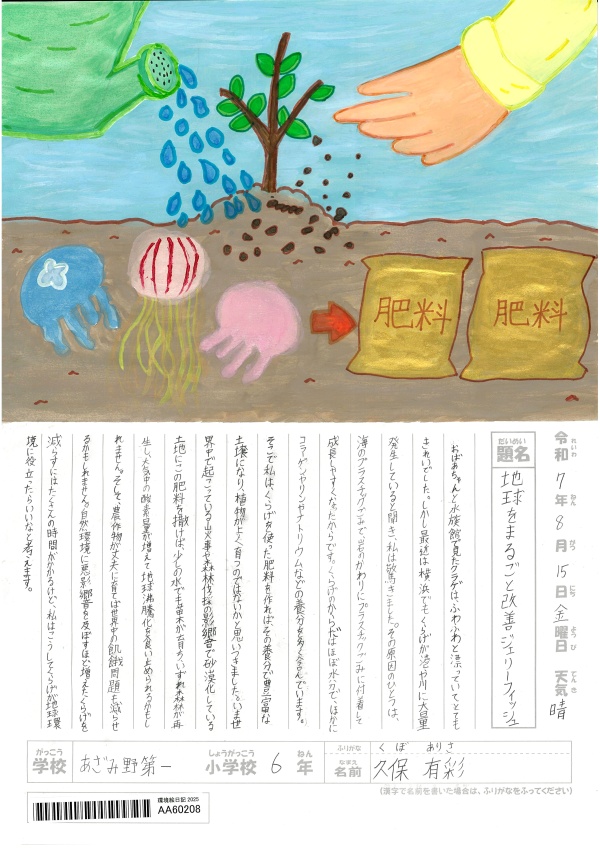 肥料
肥料
令和7年8月15日金曜日 天気 晴
れいわ ねん がつ にち ようび てんき
だいめい
題名
地球をまるごと改善ジェリーフィッシュ
おばあちゃんと水族館で見たクラゲは、ふわふわと漂っていてとても
きれいでした。しかし最近は横浜でもくらげが港や川に大量
発生していると聞き、私は驚きました。その原因のひとつは、
海のプラスチックごみで、岩のかわりにプラスチックごみに付着して
成長しやすくなったからです。くらげのからだはほぼ水分で、ほかに
コラーゲンやリンやナトリウムなどの養分を多くふくんでいます。
そこで私は、くらげを使った肥料を作れば、その養分で豊富な
土壌になり、植物がよく育つのではないかと思いつきました。いま世
界中で起こっている山火事や森林伐採の影響で砂漠化している
土地にこの肥料を撒けば、少しの水でも苗木が育ち、いずれ森林が再
生し、大気中の酸素量が増えて地球沸騰化を食い止められるかもし
れません。そして、農作物が丈夫に育てば世界中の飢餓問題も減らせ
るかもしれません。自然環境に悪影響を及ぼすほど増えたくらげを
減らすにはたくさんの時間がかかるけど、私はこうしてくらげが地球環
境に役立ったらいいなと考えます。
がっこう しょうがっこう ねん
学校 あざみ野第一 小学校 6年
ふりがな くぼ ありさ
なまえ
名前 久保 有彩
(漢字で名前を書いた場合は、ふりがなをふってください)
環境絵日記2025
AA60208